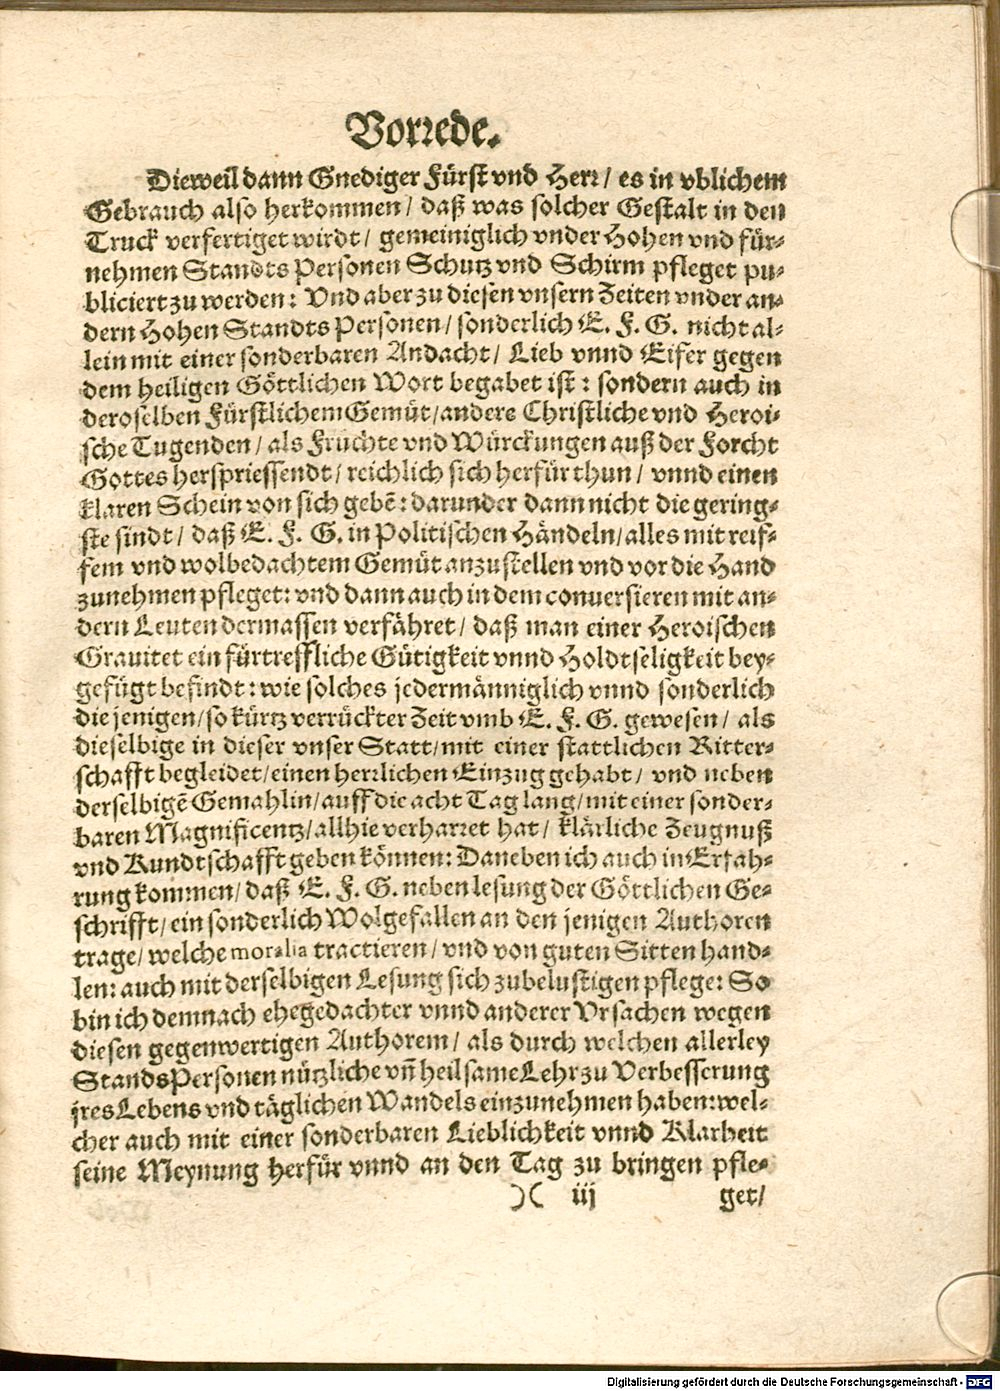 Vorrede.
Dieweil dann Gnediger Fürst vnd Herr / es in vblichem
Gebrauch also herkommen / daß was solcher Gestalt in den
Truck verfertiget wirdt / gemeiniglich vnder Hohen vnd für-
nehmen Standts Personen Schutz vnd Schirm pfleget pu-
bliciert zu werden: Vnd aber zu diesen vnsern Zeiten vnder an-
dern Hohen Standts Personen / sonderlich E. F. G. nicht al-
lein mit einer sonderbaren Andacht / Lieb vnnd Eifer gegen
dem heiligen Göttlichen Wort begabet ist: sondern auch in
deroselben Fürstlichem Gemüt / andere Christliche vnd Heroi-
sche Tugenden / als Früchte vnd Würckungen auß der Forcht
Gottes herspriessendt / reichlich sich herfür thun / vnnd einen
klaren Schein von sich gebẽ: darunder dann nicht die gering-
ste sindt / daß E. F. G. in Politischen Händeln / alles mit reif-
fem vnd wolbedachtem Gemüt anzustellen vnd vor die Hand
zunehmen pfleget: vnd dann auch in dem conuersieren mit an-
dern Leuten dermassen verfähret / daß man einer Heroischen
Grauitet ein fürtreffliche Gütigkeit vnnd Holdtseligkeit bey-
gefügt befindt: wie solches jedermänniglich vnnd sonderlich
die jenigen / so kürtz verrückter Zeit vmb E. F. G. gewesen / als
dieselbige in dieser vnser Statt / mit einer stattlichen Ritter-
schafft begleidet / einen herrlichen Einzug gehabt / vnd neben
derselbigẽ Gemahlin / auff die acht Tag lang / mit einer sonder-
baren Magnificentz / allhie verharret hat / klärliche Zeugnuß
vnd Kundtschafft geben können: Daneben ich auch in Erfah-
rung kommen / daß E. F. G. neben lesung der Göttlichen Ge-
schrifft / ein sonderlich Wolgefallen an den jenigen Authoren
trage / welche moralia tractieren / vnd von guten Sitten hand-
len: auch mit derselbigen Lesung sich zubelustigen pflege: So
bin ich demnach ehegedachter vnnd anderer Vrsachen wegen
diesen gegenwertigen Authorem / als durch welchen allerley
StandsPersonen nützliche vñ heilsame Lehr zu Verbesserung
jres Lebens vnd täglichen Wandels einzunehmen haben: wel-
cher auch mit einer sonderbaren Lieblichkeit vnnd Klarheit
seine Meynung herfür vnnd an den Tag zu bringen pfle-
)( iij get /
Digitalisierung gefördert durch die Deutsche Forschungsgemeinschaft - DFG